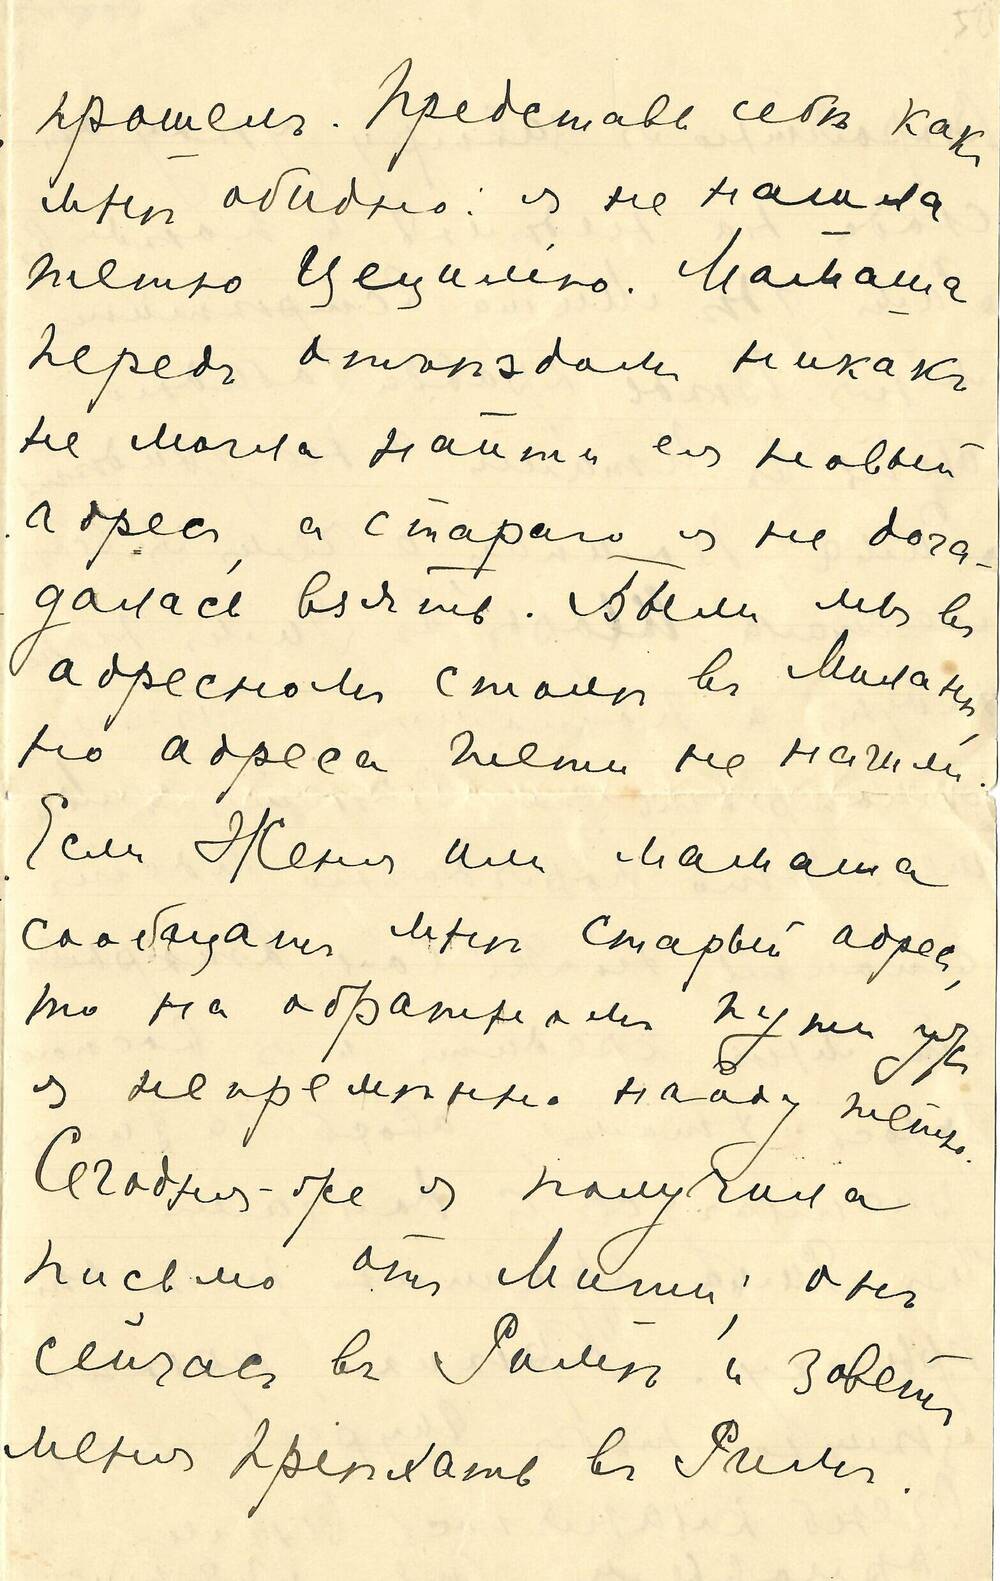 прошелъ. Представь себѣ какъ
мнѣ обидно: я не нашла
тетю Цецилію. Мамаша
передъ отъѣздомъ никакъ
не могла найти ея новый
адресъ, а стараго я не дога-
далась взять. Были мы въ
адресномъ столѣ въ Миланѣ,
но адреса тети не нашли.
Если Женя или мамаша
сообщатъ мнѣ старый адресъ,
то на обратномъ пути ужъ
я непремѣнно найду тетю.
Сегодня-же я получила
письмо отъ Мити; онъ
сейчасъ въ Римѣ и зоветъ
меня пріѣхать въ Римъ.